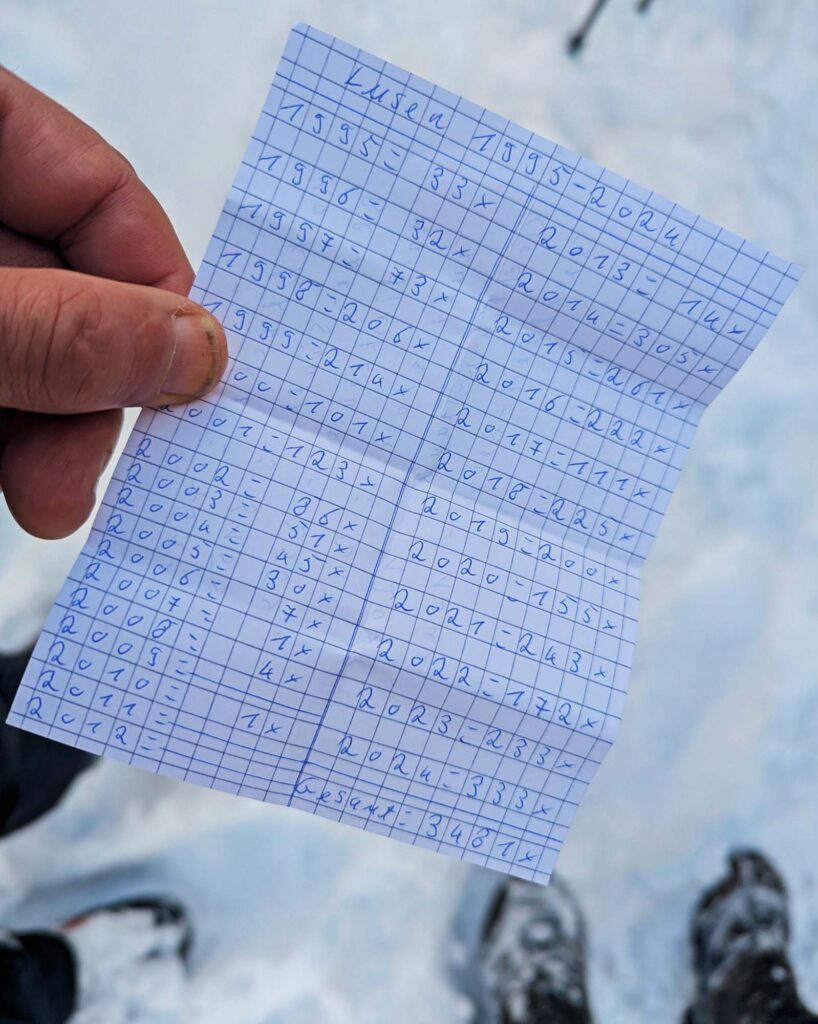 Lusen 1995-2024
1995= 33x
1996= 32x
1997= 73x
1998=206x
1999=214x
00=101x
2001=123x
2002= 86x
2003= 51x
2004= 45x
2005= 30x
2006= 7x
2007= 1x
2008= 4x
2009=
2010= 1x
2011=
2012=
2013= 14x
2014=305x
2015=261x
2016=222x
2017=111x
2018=225x
2019=200x
2020=155x
2021=243x
2022=172x
2023=233x
2024=333x
Gesamt=3481x